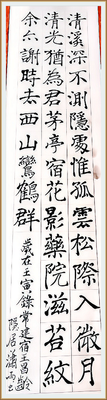 清溪深不測隱處惟孤雲松際入微月
清光猶為君茅亭宿花影藥院滋苔紋
余亦謝時去西山鸞鶴群 歲在壬寅錄常建宿王昌齡
隱居